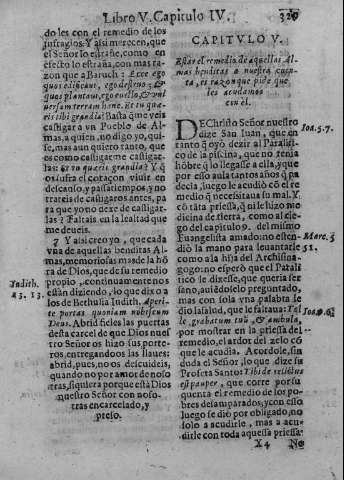 Libro V. Capitulo IV.
do les con el remedio de los
sufragios. Y assi merecen, que
el Señor lo estrañe, como en
efecto lo estraña, con mas ra
zon que a Baruch: Ecce ego
quos edificaui, ego destruo: &
quos plantaui, ego euello, & uni
uersam terram hanc. Et tu quæ
ris tibi grandia? Basta que veis
castigar a vn Pueblo de Al-
mas, a quien, no digo yo, qui-
se, mas aun quiero tanto, que
es como castigarme castigar-
las: & tu quæris grandia? Y q̃
os sufra el coraçon viuir en
descanso, y passatiempos, y no
trateis de castigaros antes, pa
ra que yo no dexe de castigar-
las? Faltais en la lealtad que
me deueis.
7 Y assi creo yo, que cada
vna de aquellas benditas Al
mas, memoriosas mas de la hõ
ra de Dios, que de su remedio
propio, continuamente nos
estàn diziendo, lo que dixo a
los de Bethulia Iudith. Aperi-
te portas quoniam nobiscum
Deus. Abrid fieles las puertas
desta carcel de que Dios nues
tro Señor os hizo sus porte-
ros, entregandoos las llaues:
abrid, pues, no os descuideis,
quando no por amor de noso
tras, siquiera porque està Dios
nuestro Señor con noso-
tras encarcelado, y
preso.
Iudith.
13. 13.
CAPITVLO V.
Estar el remedio de aquellas Al
mas benditas a nuestra cuen-
ta, es razon que pide que
les acudamos
con èl.
DE Christo Señor nuestro
dize San Iuan, que en
tanto q̃ oyò dezir al Paralisi-
co de la piscina, que no tenia
hõbre q̃ lo llegasse a ella, y que
por esso aula tantos años q̃ pa
decia, luego le acudiò cõ el re
medio q̃ necessitaua su mal. Y
cõ tãta priessa, q̃ ni le hizo me
dicina de tierra, como al cie-
go del capitulo 9. del mismo
Euangelista amado: no esten-
diò la mano para leuantarle
como a la hija del Archisina-
gogo: no esperò que el Parali
tico le dixesse, que queria ser
sano, auiẽdoselo preguntado,
mas con sola vna palabra se
diò la salud, que le faltaua: Tol
le grabatum tuũ, & ambula,
por mostrar en la priessa del
remedio, el ardor del zelo cõ
que le acudia. Acordole, sin
duda el Señor, lo que dize su
Profeta Santo: Tibi derelictus
est pauper, que corre por su
quenta el remedio de los po-
bres desamparados; y con esso
luego se diò por obligado, no
solo a acudirle, mas a acu-
dirle con toda aquessa priessa.
Ioa. 5. 7.
Marc. 5
X4 No